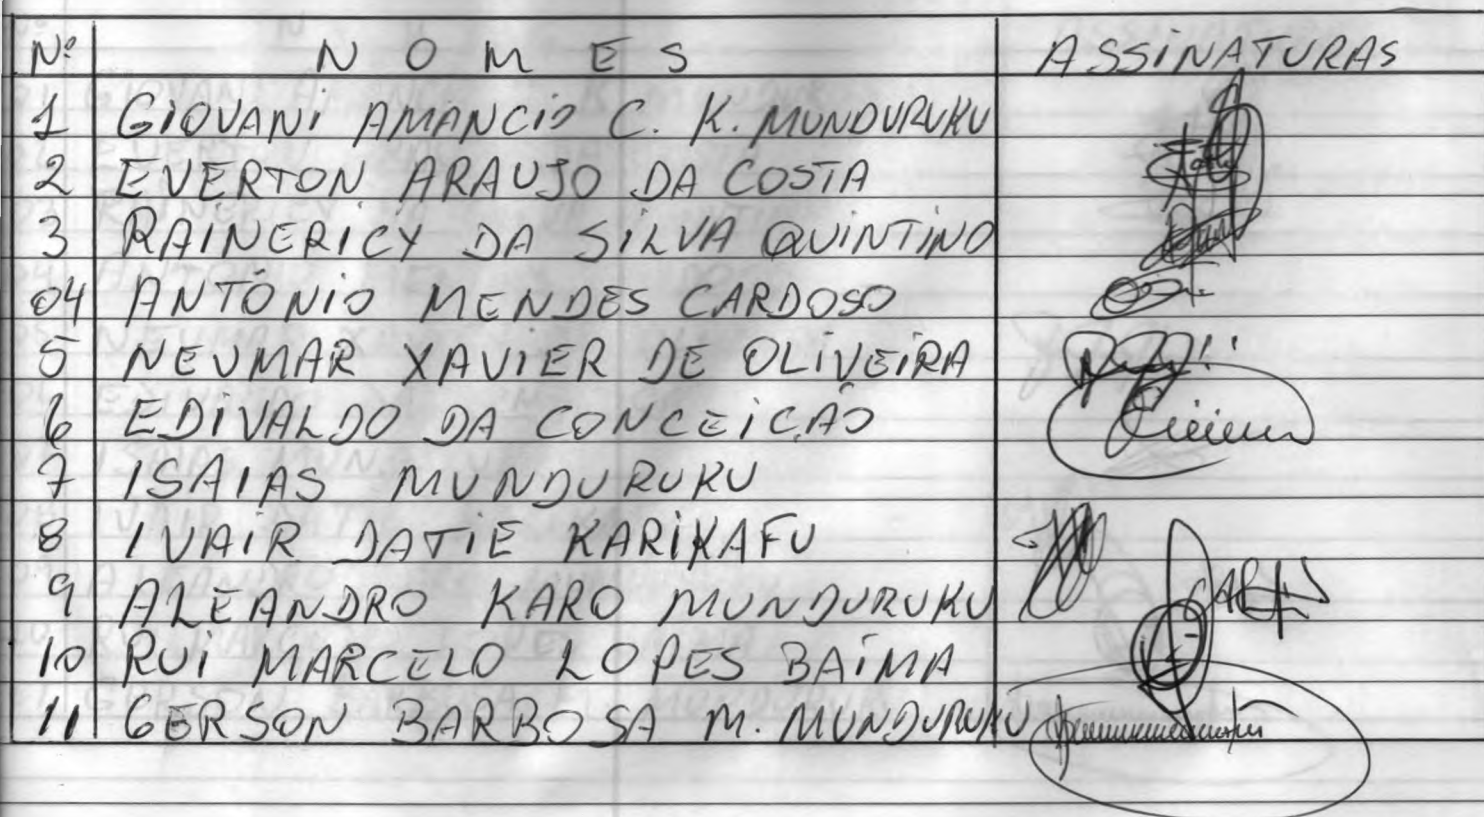 Nº NOMES ASSINATURAS
1 GIOVANI AMANCIO C. K. MUNDURUKU
2 EVERTON ARAUJO DA COSTA
3 RAINERICY DA SILVA QUINTINO
04 ANTÔNIO MENDES CARDOSO
5 NEUMAR XAVIER DE OLIVEIRA
6 EDIVALDO DA CONCEICÃO
7 ISAIAS MUNDURUKU
8 IVAIR DATIE KARIKAFU
9 ALEANDRO KARO MUNDURUKU
10 RUI MARCELO LOPES BAIMA
11 GERSON BARBOSA M. MUNDURUKU